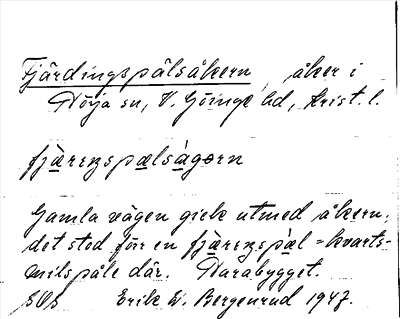 Fjärdingspålsåkern, åker i
Nöja sn, V. Göinge hd, Krist. l.
fjæ̀rəŋspælsàgoɽn
Gamla vägen gick utmed åkern;
det stod för en fjæ̀rəŋspæl = kvarts-
milspåle där. Narabygget.
SOS Erik W. Bergenrud 1947.